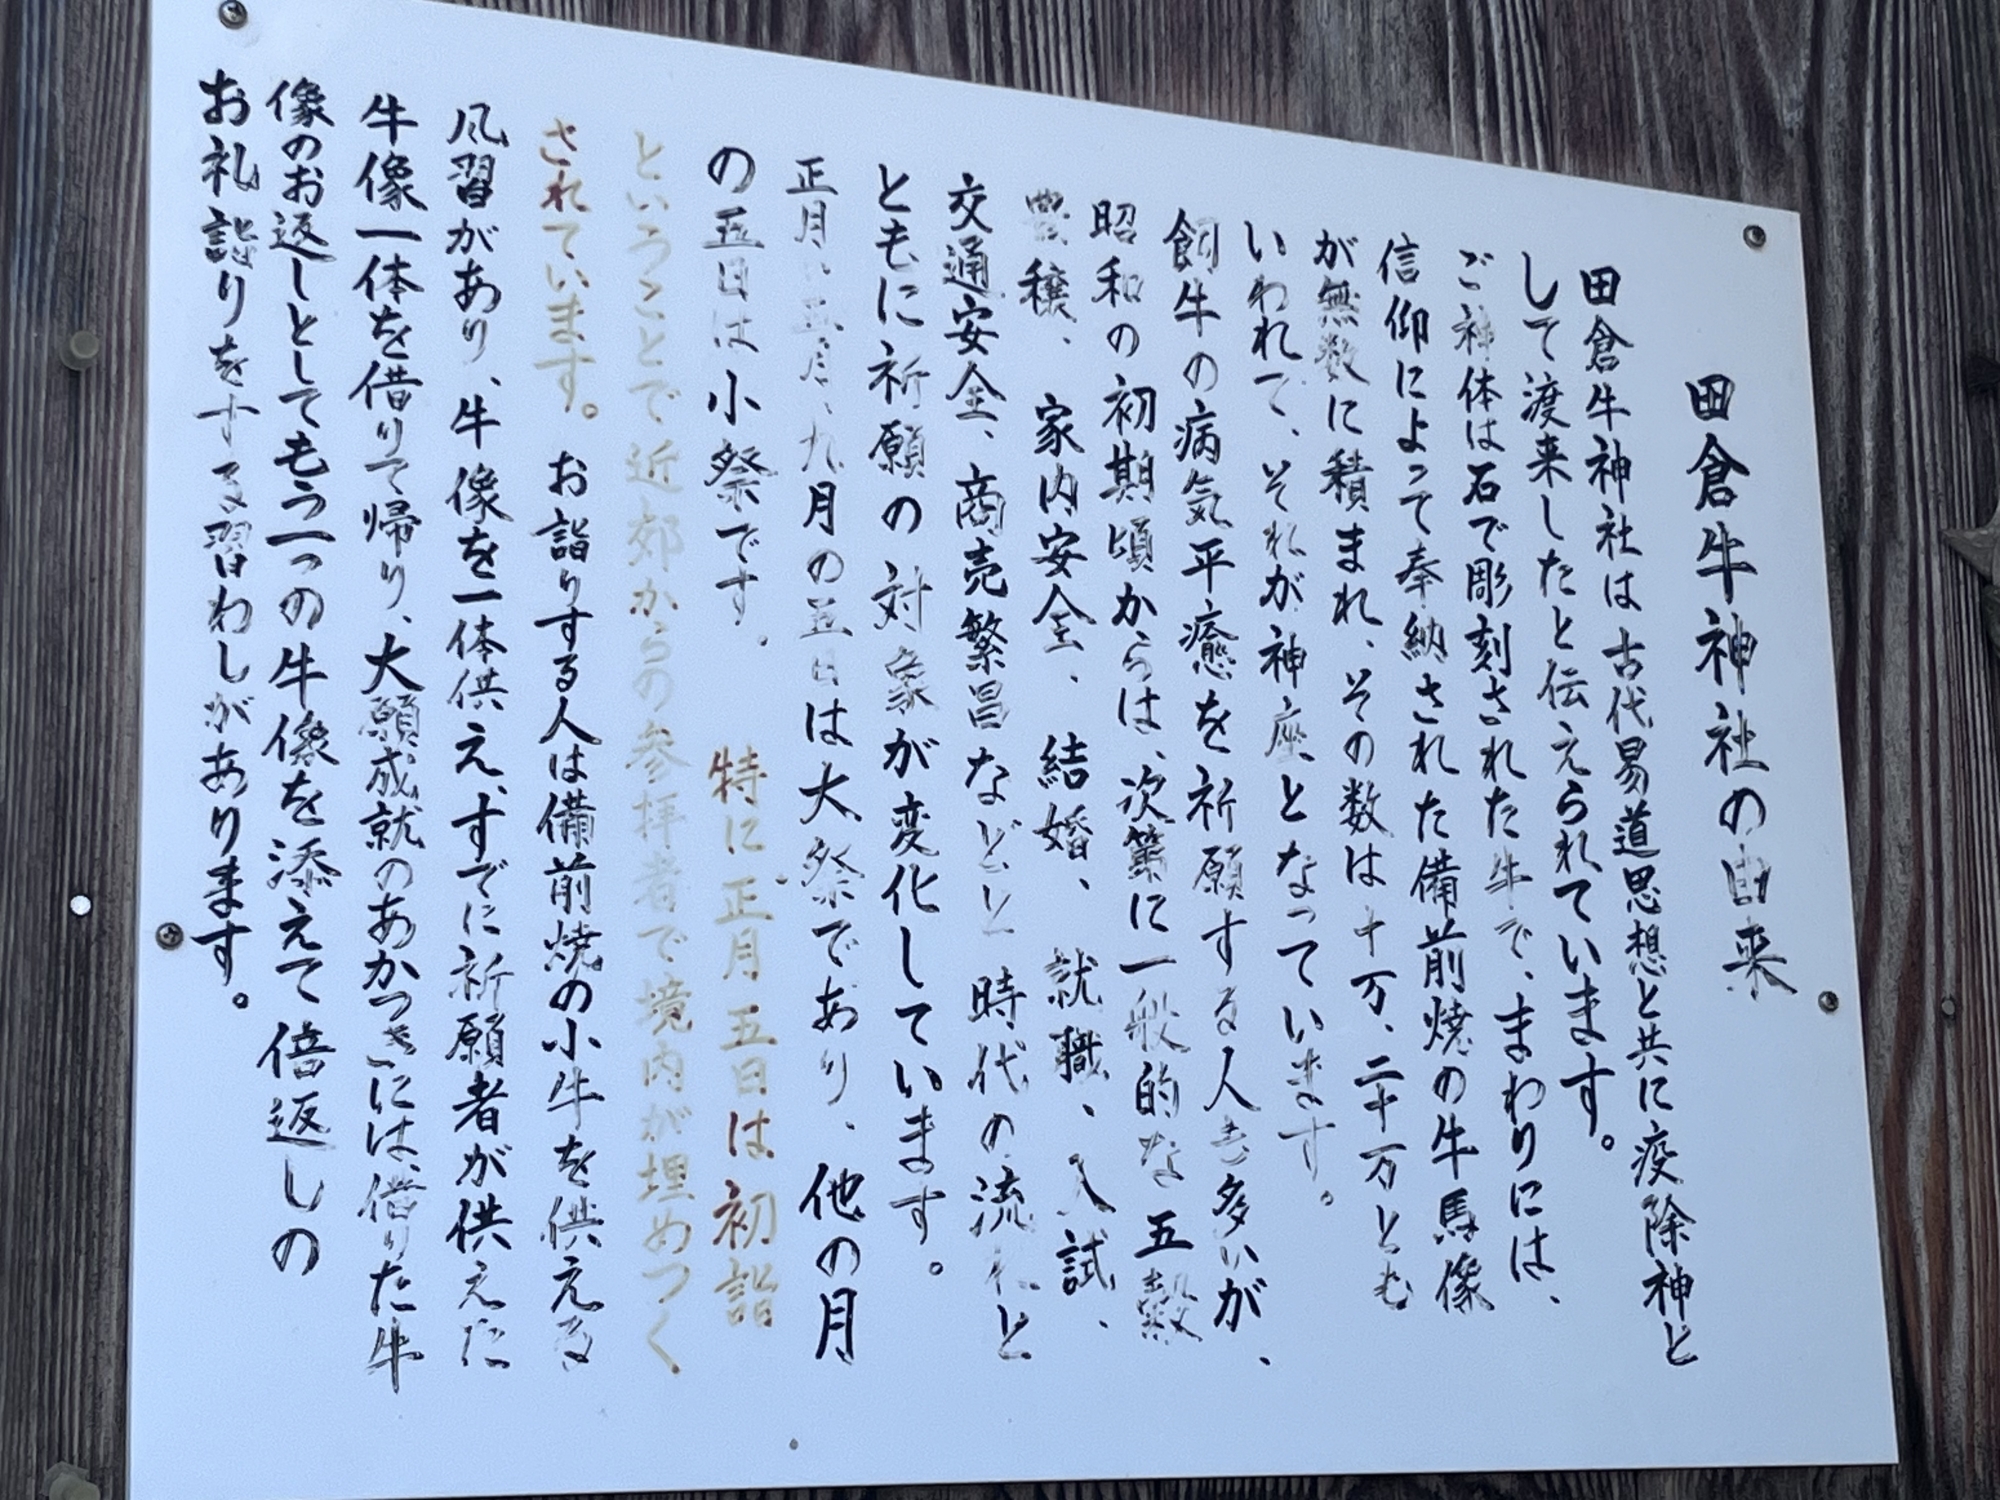 田倉牛神社の由来
田倉牛神社は古代易道思想と共に疫除神と
して渡来したと伝えられています。
ご神体は石で彫刻された牛で、まわりには、
信仰によって奉納された備前焼の牛馬像
が無数に積まれ、その数は十万、二十万とも
いわれて、それが神座となっています。
飼牛の病気平癒を祈願する人も多いが、
昭和の初期頃からは、次第に一般的な五穀
豊穣、家内安全、結婚、就職、入試、
交通安全、商売繁昌などと時代の流れと
ともに祈願の対象が変化しています。
正月に五月、九月の五日は大祭であり、他の月
の五日は小祭です。特に正月五日は初詣
ということで近郊からの参拝者で境内が埋めつく
されています。お詣りする人は備前焼の小牛を供える
風習があり、牛像を一体供え、すでに祈願者が供えた
牛像一体を借りて帰り、大願成就のあかつきには、借りた牛
像のお返しとしてもう一つの牛像を添えて倍返しの
お礼詣りをする習わしがあります。